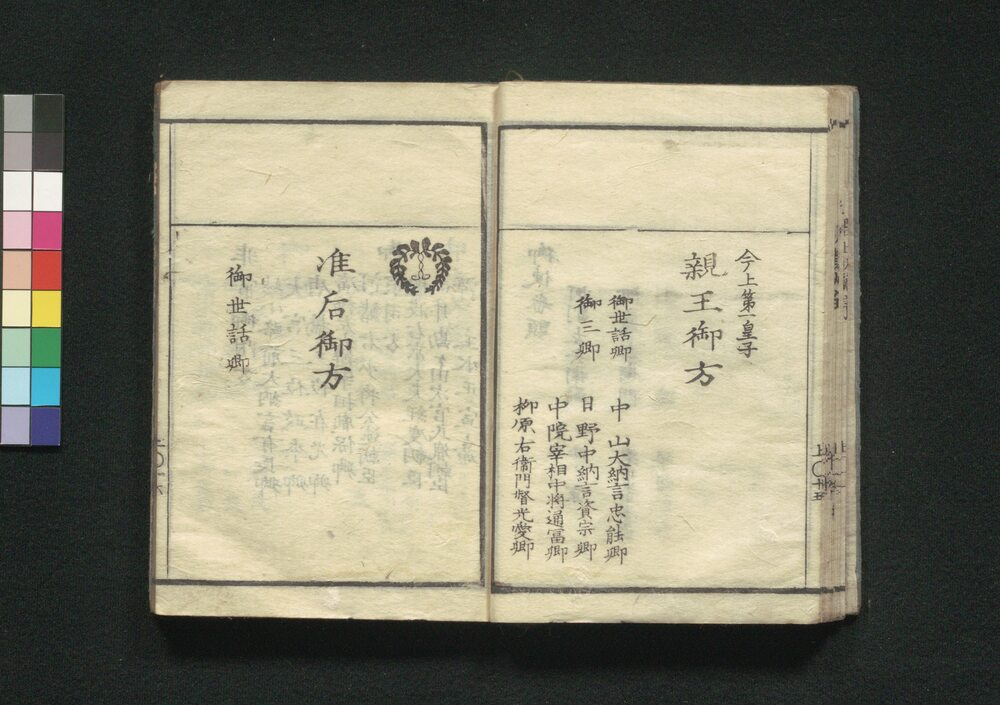 今上第一皇子
親王御方
御世話卿
中山大納言忠能卿
御三卿
日野中納言資宗卿
中院宰相中将通冨卿
柳原右衞門督光愛卿
准后御方
御世話卿